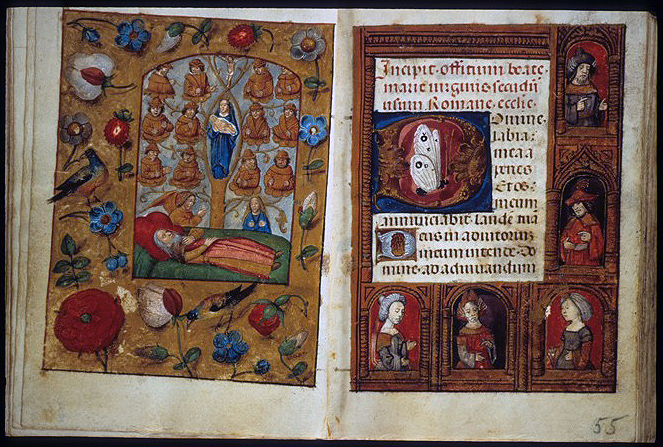 Incipit officium beate
marie virginis secundū
usum Romane ecclie.
Domine
labia
mea a
peries
Et os
meum
annunciabit laudē tuā
Deus in adiutoriū
meum intende. Do
mine ad adiuvandum
55